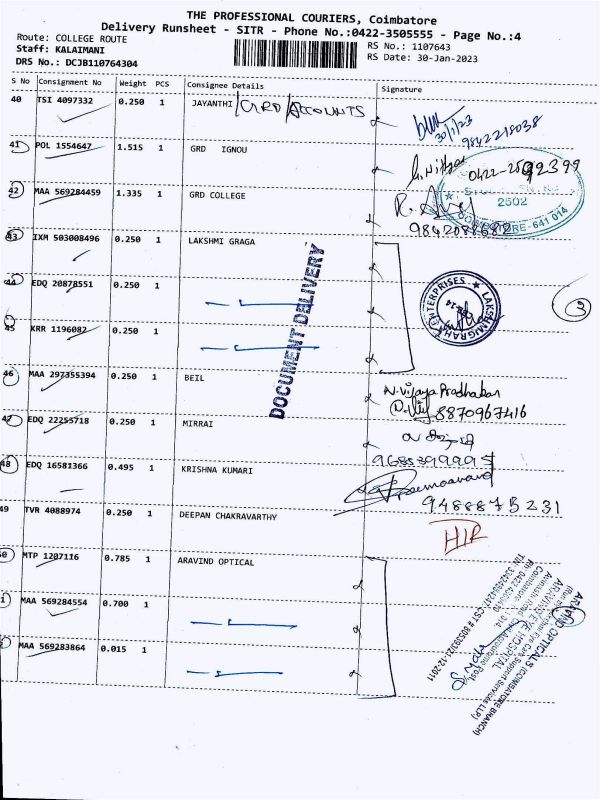 THE PROFESSIONAL COURIERS, Coimbatore
Delivery Runsheet - SITR - Phone No.:0422-3505555 - Page No.:4
Route: COLLEGE ROUTE
Staff: KALAIMANI
DRS No.: DCJB110764304
RS No.: 1107643
RS Date: 30-Jan-2023
S No Consignment No Weight PCS Consignee Details Signature
40 TSI 4097332 0.250 1 JAYANTHI / GRD / ACCOUNTS
30/1/23
9842218038
41 POL 1554647 1.515 1 GRD IGNOU
42 MAA 569284459 1.335 1 GRD COLLEGE
2502
641 014
43 IXM 503008496 0.250 1 LAKSHMI GRAGA
44 EDQ 20878551 0.250 1
DOCUMENT DELIVERY
ENTERPRISES
3
45 KRR 1196082 0.250 1
46 MAA 297355394 0.250 1 BEIL
N. Vijaya Prabhakar
8870967416
47 EDQ 22255718 0.250 1 MIRRAI
48 EDQ 16581366 0.495 1 KRISHNA KUMARI
9488875231
49 TVR 4088974 0.250 1 DEEPAN CHAKRAVARTHY
50 MTP 1207116 0.785 1 ARAVIND OPTICAL
1 MAA 569284554 0.700 1
MAA 569283864 0.015 1
ARAVIND OPTICALS (COIMBATORE BRANCH)
ARAVIND EYE HOSPITAL